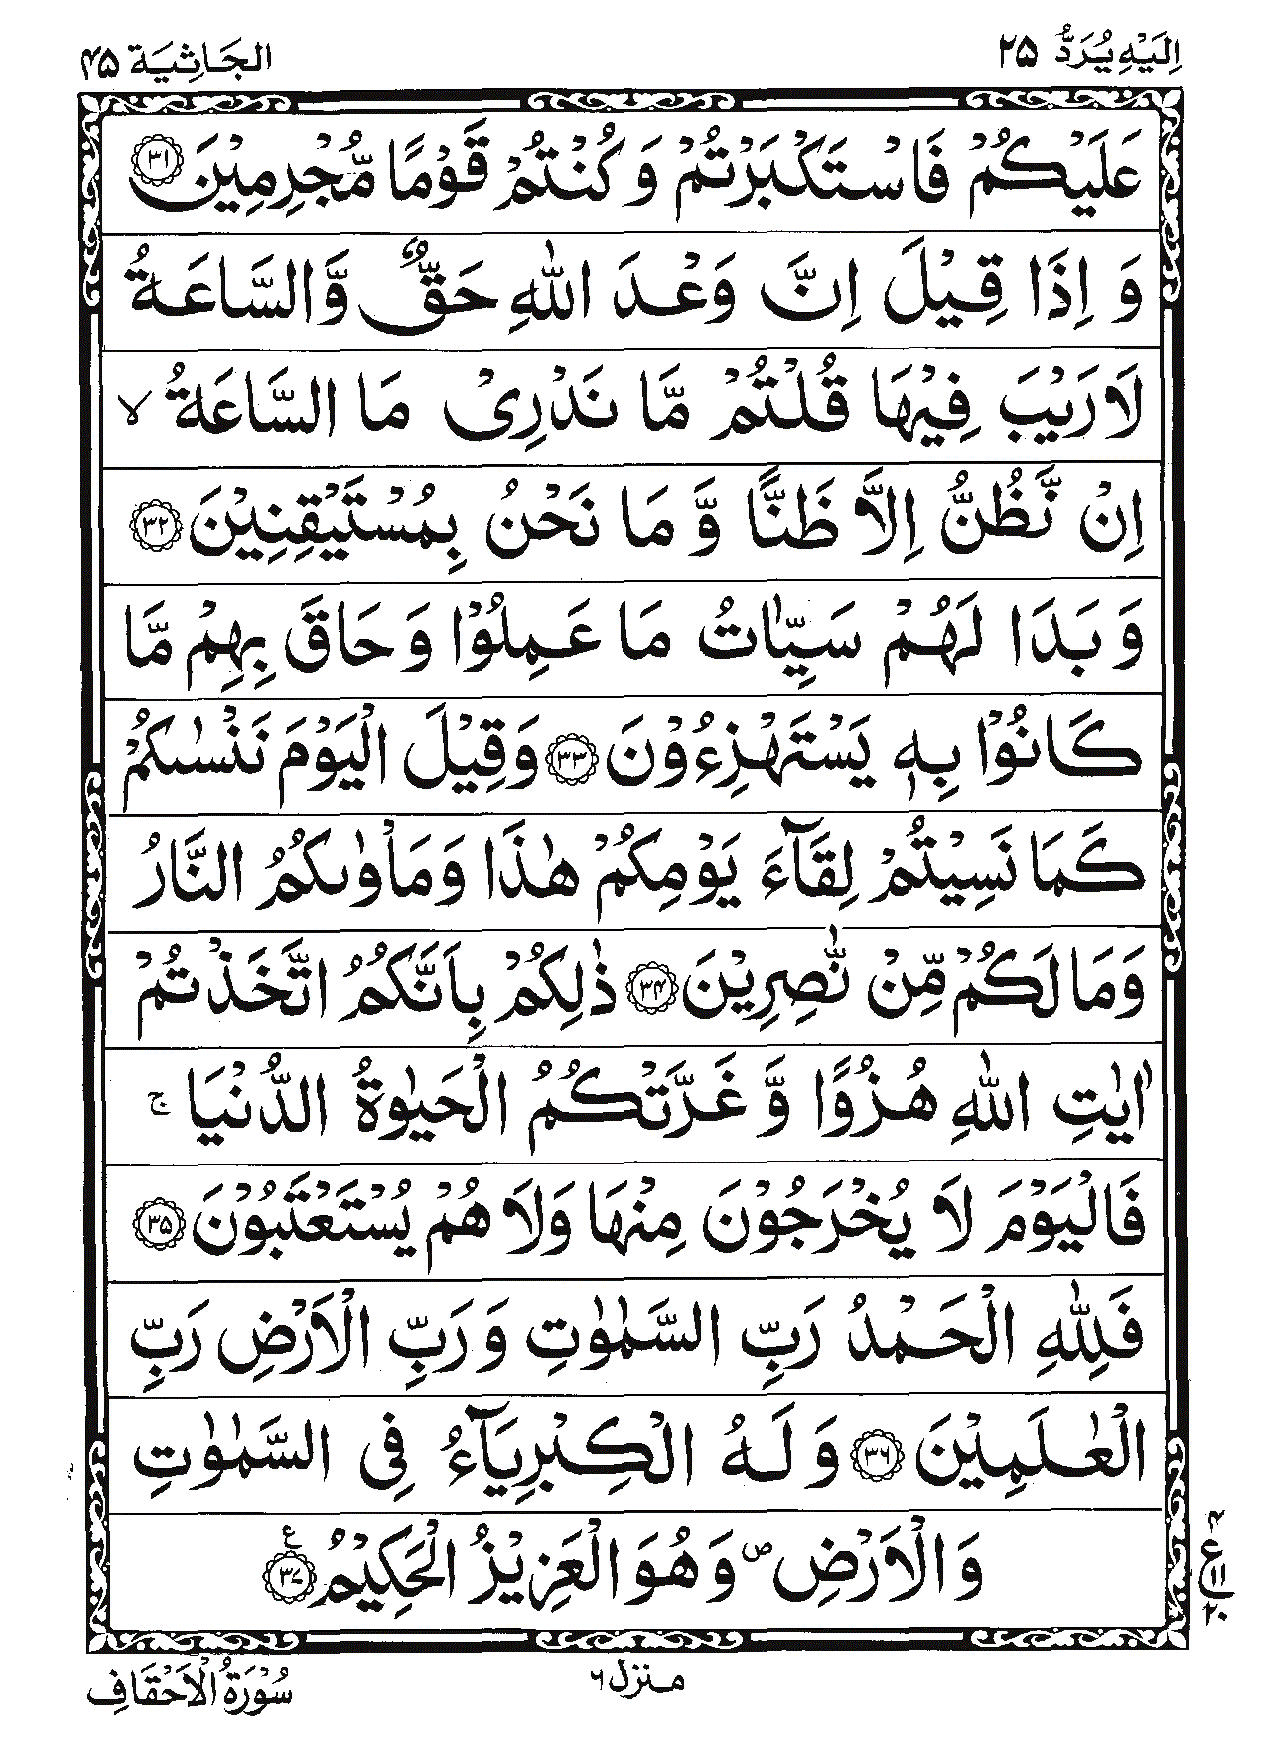 اِلَيْهِ يُرَدُّ ٢٥
الجَاثِيَة ٤٥
عَلَيْكُمْ فَاسْتَكْبَرْتُمْ وَكُنْتُمْ قَوْمًا مُّجْرِمِيْنَ ﴿٣١﴾
وَ اِذَا قِيْلَ اِنَّ وَعْدَ اللّٰهِ حَقٌّ وَّالسَّاعَةُ
لَا رَيْبَ فِيْهَا قُلْتُمْ مَّا نَدْرِىْ مَا السَّاعَةُ ۙ
اِنْ نَّظُنُّ اِلَّا ظَنًّا وَّ مَا نَحْنُ بِمُسْتَيْقِنِيْنَ ﴿٣٢﴾
وَ بَدَا لَهُمْ سَيِّاٰتُ مَا عَمِلُوْا وَ حَاقَ بِهِمْ مَّا
كَانُوْا بِهٖ يَسْتَهْزِءُوْنَ ﴿٣٣﴾ وَقِيْلَ الْيَوْمَ نَنْسٰىكُمْ
كَمَا نَسِيْتُمْ لِقَآءَ يَوْمِكُمْ هٰذَا وَمَاْوٰىكُمُ النَّارُ
وَمَا لَكُمْ مِّنْ نّٰصِرِيْنَ ﴿٣٤﴾ ذٰلِكُمْ بِاَنَّكُمُ اتَّخَذْتُمْ
اٰيٰتِ اللّٰهِ هُزُوًا وَّ غَرَّتْكُمُ الْحَيٰوةُ الدُّنْيَا ۚ
فَالْيَوْمَ لَا يُخْرَجُوْنَ مِنْهَا وَلَا هُمْ يُسْتَعْتَبُوْنَ ﴿٣٥﴾
فَلِلّٰهِ الْحَمْدُ رَبِّ السَّمٰوٰتِ وَ رَبِّ الْاَرْضِ رَبِّ
الْعٰلَمِيْنَ ﴿٣٦﴾ وَ لَهُ الْكِبْرِيَآءُ فِى السَّمٰوٰتِ
وَ الْاَرْضِ ۖ وَ هُوَ الْعَزِيْزُ الْحَكِيْمُ ﴿٣٧﴾ ع
ع
١١
٢٠
منزل ٦
سُوْرَةُ الْاَحْقَافِ